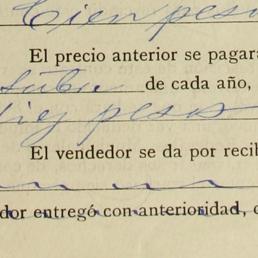 Cien pesos
El precio anterior se pagará
de cada año,
pesos
El vendedor se da por recib
dor entregó con anterioridad, c